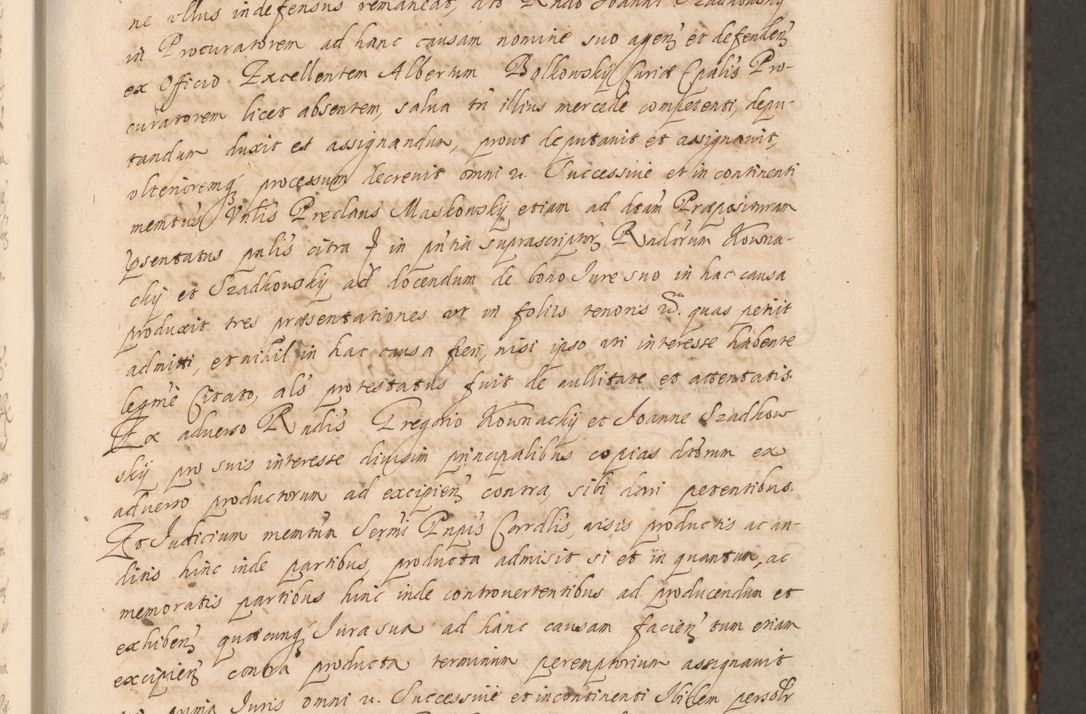 ne ullus indefensus remaneat, dto Rndo Joanni Szadkowsky
in Procuratorem ad hanc causam nomine suo agen et defenden
ex Officio Excellentem Albertum Bolkowsky Curiæ Epalis Pro-
curatorem licet absentem, salva tn illius mercede competenti, depu-
tandum duxit et assignandum, prout deputavit et assignavit,
ulterioremq processum decrevit omni u. Successive et in continenti
memtus Vnlis Preclaus Maskowsky etiam ad dtam Præposituram
psentatus pnlis citra in pntia suprascriptor Rndorum Kowna-
chy et Szadkowsky ad docendum de bono Jure suo in hac causa
produxit tres præsentationes ut in foliis tenoris quas petiit
admitti, et nihil in hac causa fieri, nisi ipso uti interesse habente
legme Citato, als protestatus fuit de nullitate et attentatis.
Ex adverso Rndis Gregorio Kownachy et Joanne Szadkow
sky pro suis interesse divisim principalibus copias dtorum ex
adverso productorum ad excipien contra, sibi dari petentibus.
Et Judicium memtum Sermi Pnpis Cardlis, visis productis ac au-
ditis hinc inde partibus, producta admisit si et in quantum, ac
memoratis partibus hinc inde controvertentibus ad producendum et
exhiben quæcunq Jura sua ad hanc causam facien tum etiam
excipien contra producta terminum peremptorium assignavit
Juris omni u. Successive et incontinenti Ibidem persolr